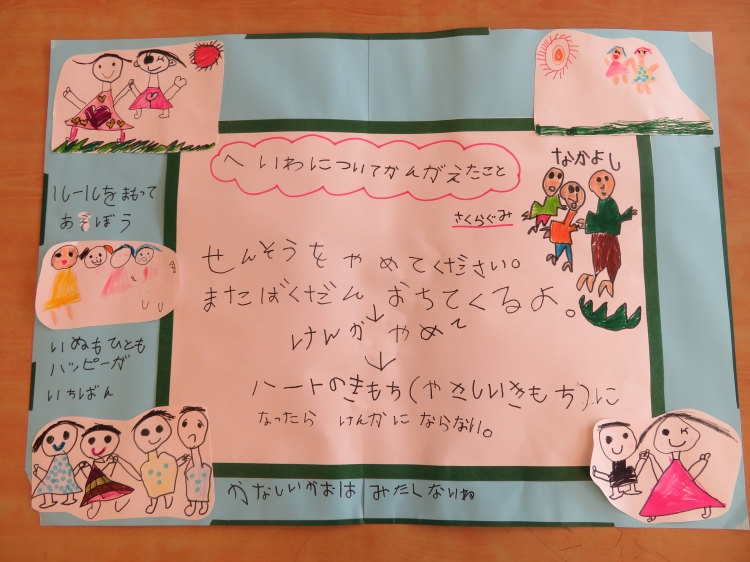 へいわについてかんがえたこと
さくらぐみ
なかよし
せんそうをやめてください。
またばくだんおちてくるよ。
↓
けんかやめて
↓
ハートのきもち(やさしいきもち)に
なったらけんかにならない。
ルールをまもって
あそぼう
いぬもひとも
ハッピーが
いちばん
かなしいかおはみたくないね